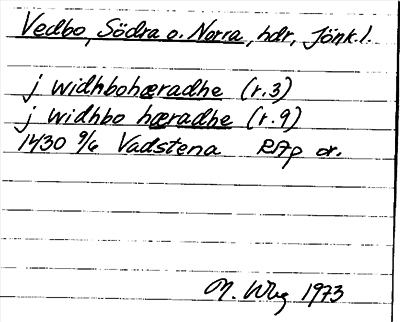 Vedbo, Södra o. Norra, hdr, Jönk.l.
j widhbohæradhe (r.3)
j widhbo hæradhe (r.9)
1430 9/6 Vadstena RAp or.
M. Wbg 1973